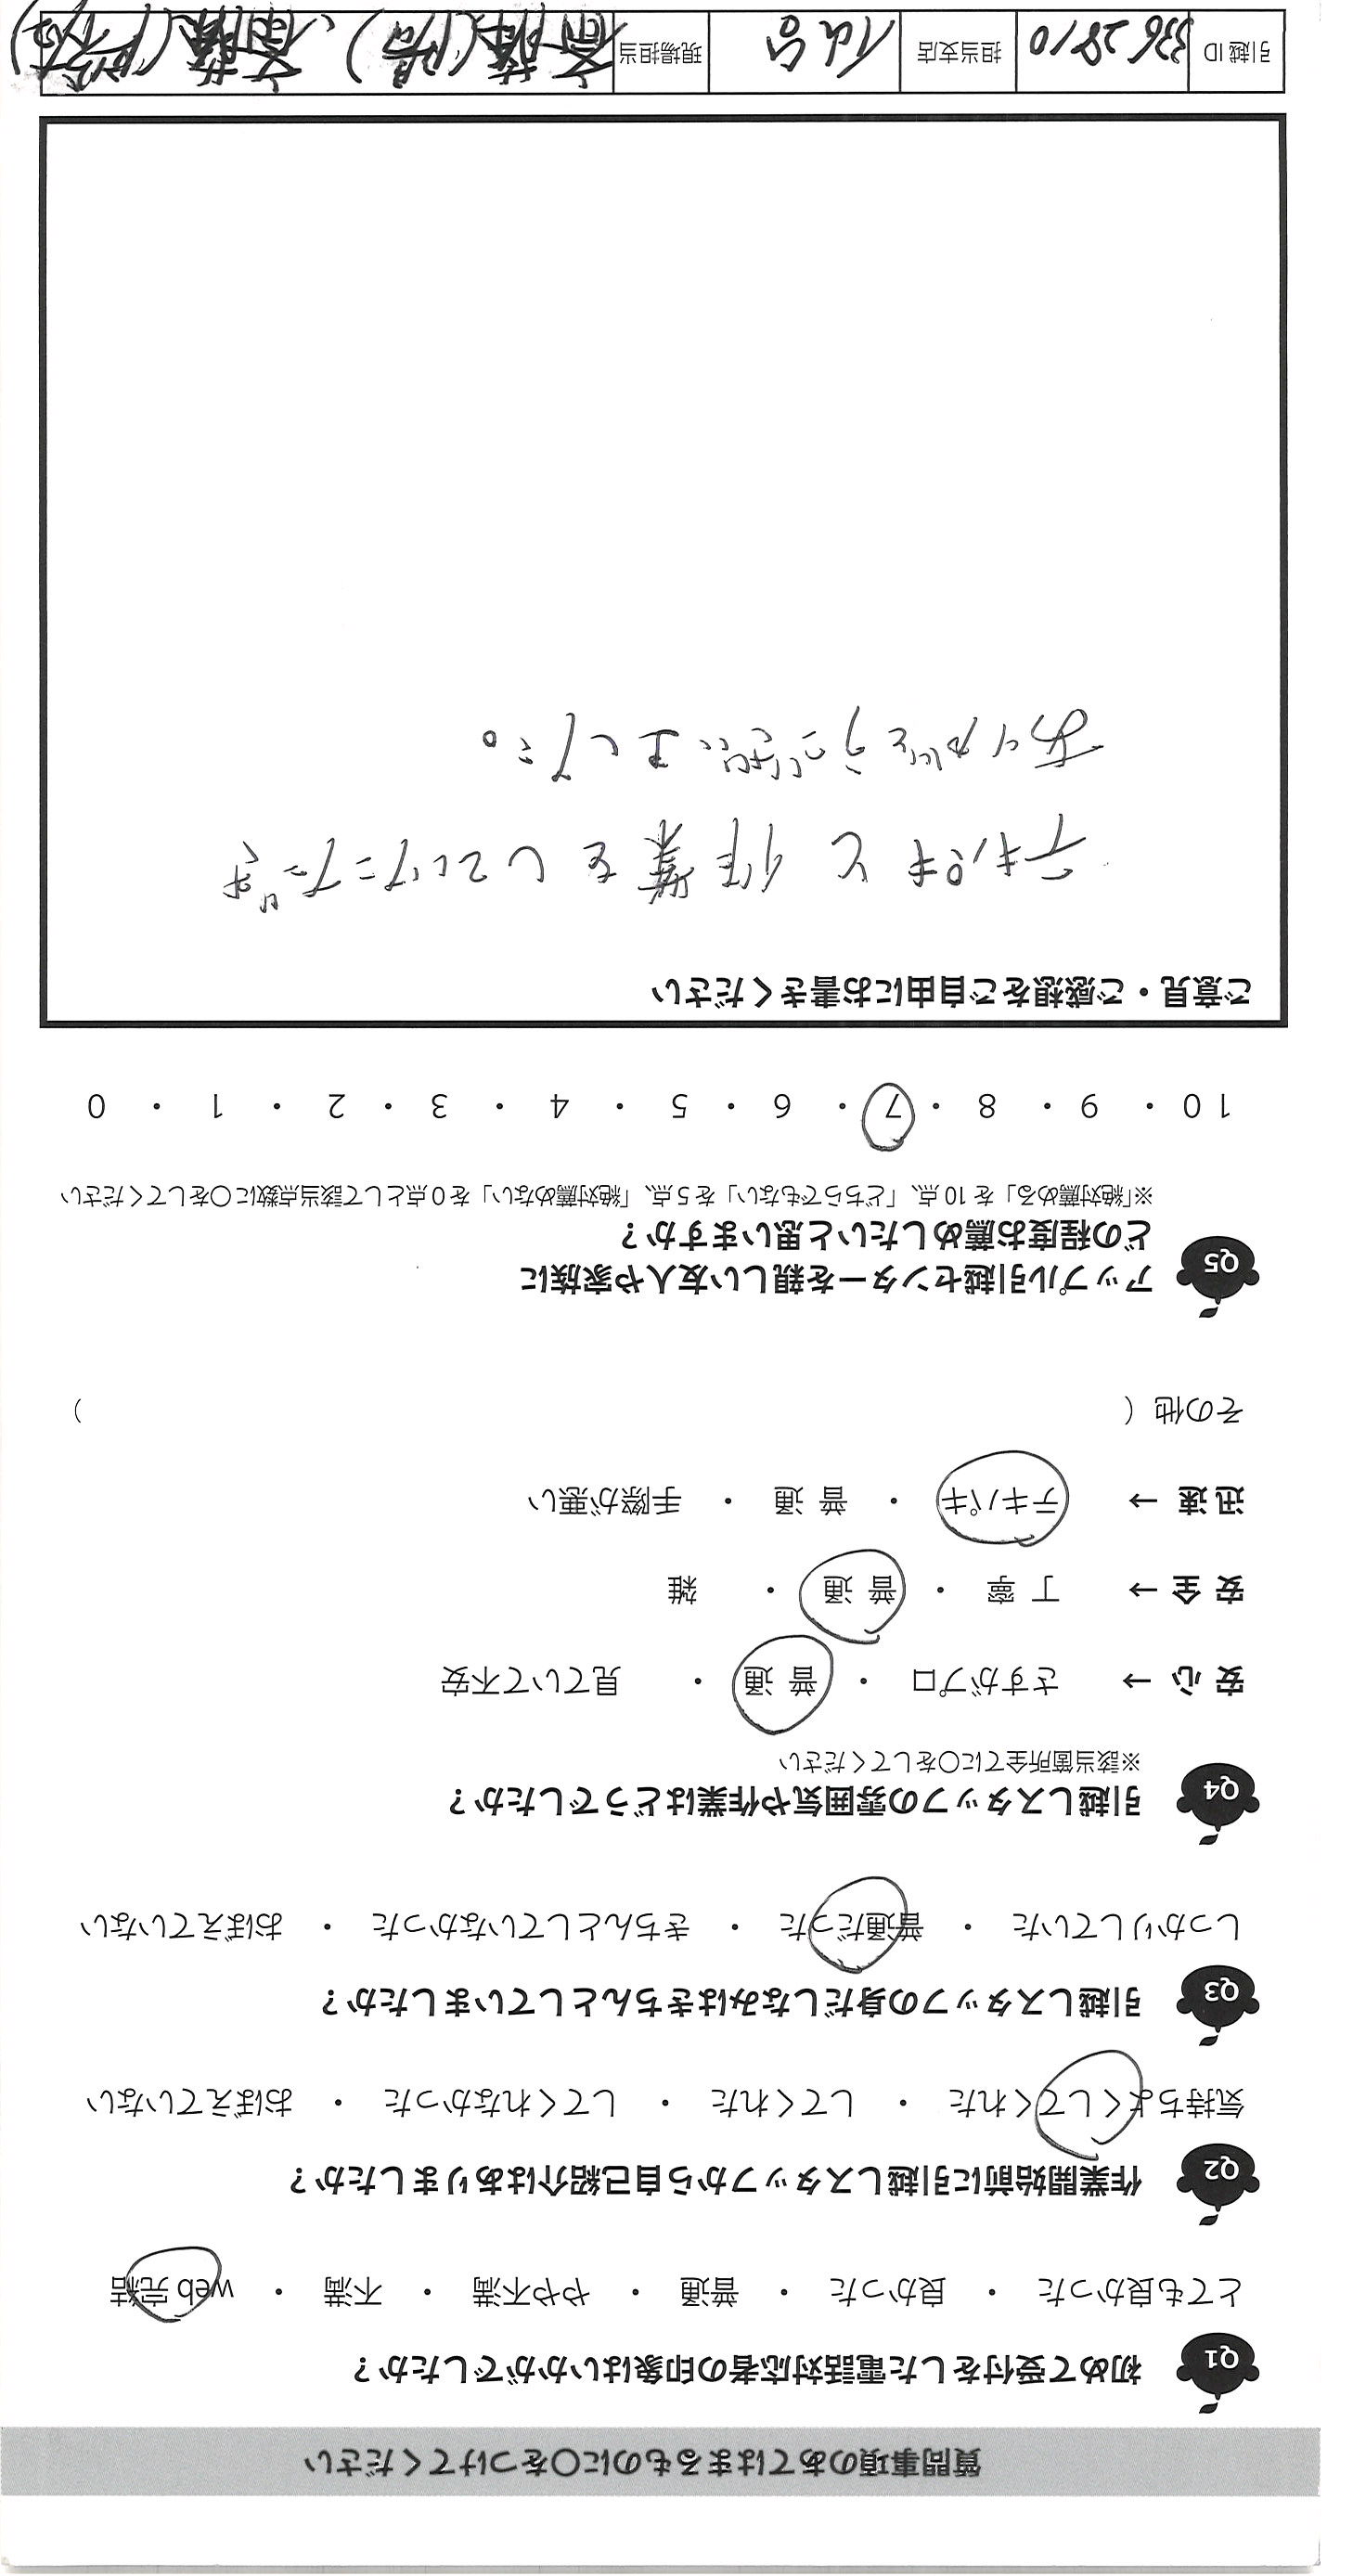 質問事項のあてはまるものに〇をつけてください
Q1 初めて受付をした電話対応者の印象はいかがでしたか？
とても良かった ・ 良かった ・ 普通 ・ やや不満 ・ 不満 ・ web 完結
Q2 作業開始前に引越しスタッフから自己紹介はありましたか？
気持ちよくしてくれた ・ してくれた ・ してくれなかった ・ おぼえていない
Q3 引越しスタッフの身だしなみはきちんとしていましたか？
しっかりしていた ・ 普通だった ・ きちんとしていなかった ・ おぼえていない
Q4 引越しスタッフの雰囲気や作業はどうでしたか？
※該当箇所全てに〇をしてください
安 心 → さすがプロ ・ 普 通 ・ 見ていて不安
安 全 → 丁 寧 ・ 普 通 ・ 雑
迅 速 → テキパキ ・ 普 通 ・ 手際が悪い
その他（ ）
Q5 アップル引越センターを親しい友人や家族に
どの程度お薦めしたいと思いますか？
※「絶対薦める」を 10 点、「どちらでもない」を 5 点、「絶対薦めない」を 0 点として該当点数に〇をしてください
10 ・ 9 ・ 8 ・ 7 ・ 6 ・ 5 ・ 4 ・ 3 ・ 2 ・ 1 ・ 0
ご意見・ご感想をご自由にお書きください
テキパキと作業をしていただき
ありがとうございました。
引越 ID 3362810 担当支店 仙台 現場担当